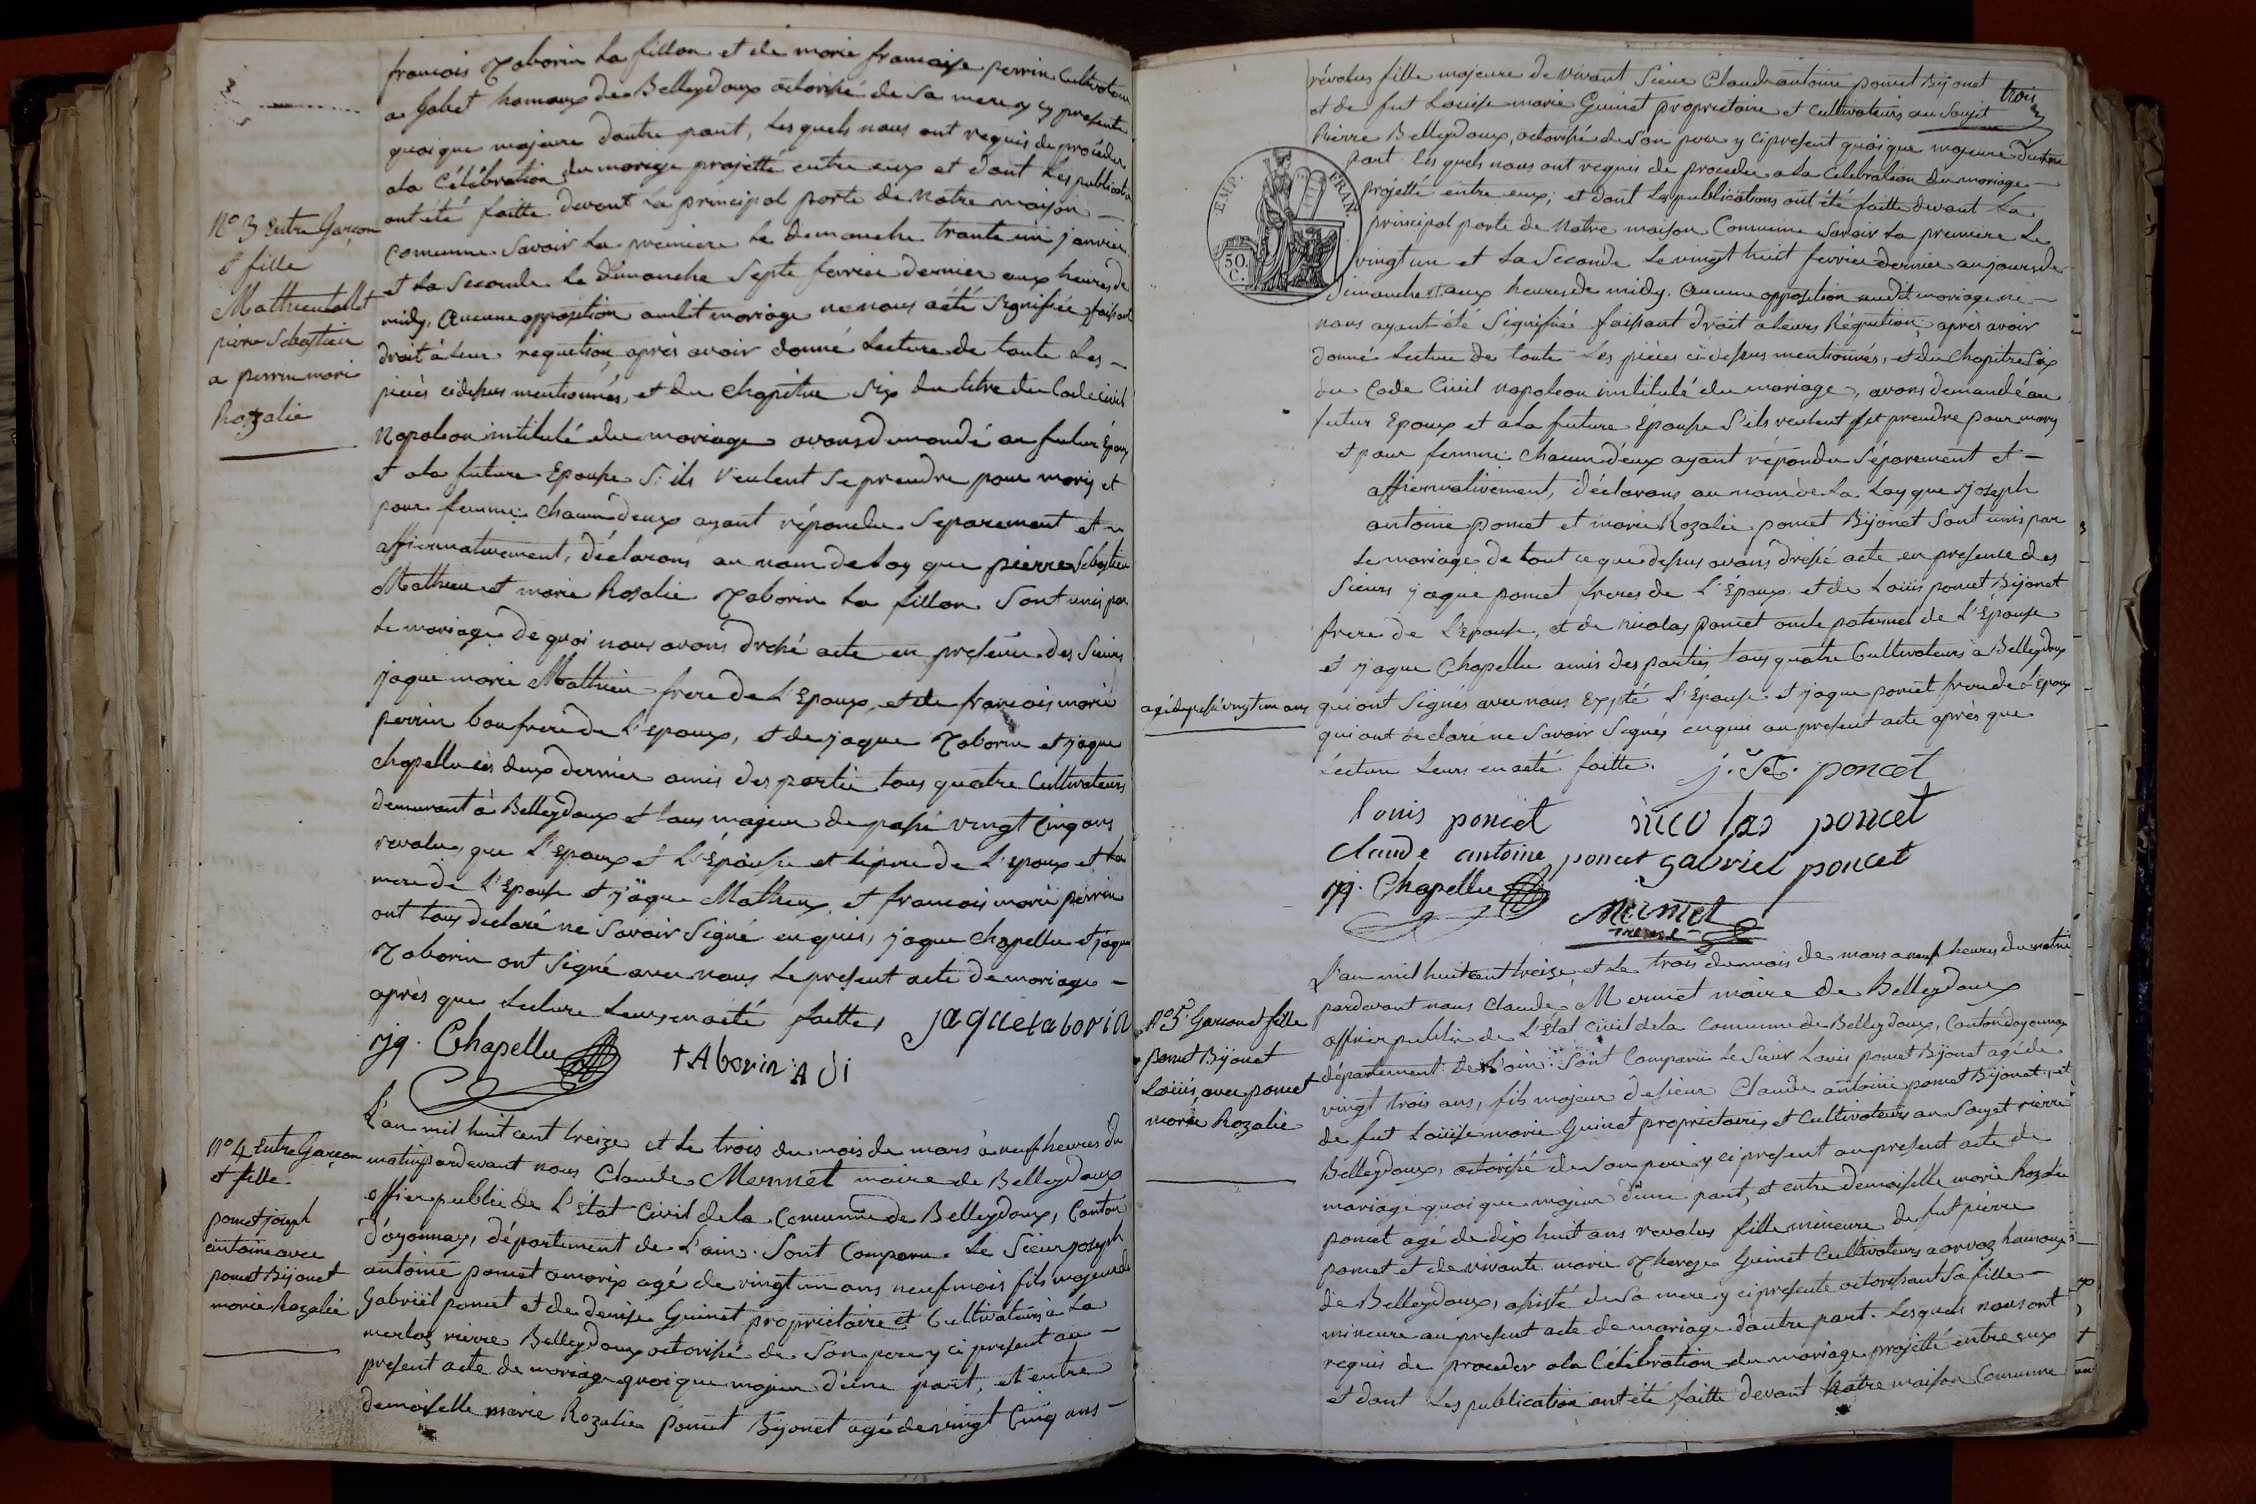 françois Taborin La fillon et de marie françoise perrin Cultivateurs
a Gobet hamaux de Belleydoux octorisé de Sa mere y cy presente
quoi que majeure dautre part, Les quels nous ont requis de proceder
ala Célébration du mariage projetté entre eux et dont Les publication
ont été faitte devant La principal porte de notre maison —
Commune Savoir La premiere Le demanche trante un janvier
et La Seconde Le dimanche Septe fevrier dernier aux heures de
midy, Aucune opposition audit mariage ne nous aété Signifiée faisant
droit à leur requetion, après avoir donné Lecture de toute Les —
pieces cidesus mentionnés, et du Chapitre Six du titre du Code Civil
Napoleon intitulé du mariage avons demandé au futur Epoux
et ala future Epouse S'ils veulent Se prendre pour mary et
pour femme: chacun deux ayant répondu Separement et
affirmativement, déclarons au nom de Loy que pierre Sebastien
Mathieu et marie Rosalie Taborin La fillon Sont unis par
Le mariage De quoi nous avons dresé acte en presence des Sieurs
jaque marie Mathieu frere de L'Epoux, et de françois marie
perrin beau frere de L'epoux, et de jaque Taborin et jaque
chapellu ces deux dernier amis des partie tous quatre Cultivateurs
demeurant à Belleydoux et tous majeur de pasé vingt Cinq ans
revolus, que L'epoux et L'Epouse et le pere de L'epoux et La
mere de L'Epouse et jaque Mathieu et françois marie perrin
ont tous declaré ne Savoir Signé enquis, jaque Chapellu et jaque
Taborin ont Signé avec nous Le present acte de mariage —
après que Lecture Leurs en aété faitte, jaque taborin
jq. Chapellu tAborin: A di
N° 3 Entre Garçon
et fille
Mathieu
pierre Sebastien
a perrin marie
Rozalie
L'an mil huit cent treize et Le trois du mois de mars à neuf heures du
matin pardevant nous Claude Mermet maire de Belleydoux
officier public de L'Etat Civil dela Commune de Belleydoux, Canton
d'oyonnax, département de L'ain. Sont Comparu Le Sieur joseph
antoine poncet agé de vingt un ans neuf mois fils majeur de
Gabriël poncet et de denise Guinet proprietaire et Cultivateurs à La
merloz rierre Belleydoux octorisé de Son pere y ci present au —
present acte de mariage quoi que majeur d'une part, et entre
demoiselle marie Rozalie Poncet Bijonet agé de vingt Cinq ans —
N° 4 Entre Garçon
et fille.
poncet joseph
antoine avec
poncet Bijonet
marie Rozalie
trois
révolus fille majeure de vivant Sieur Claude antoine poncet Bijonet
et de fut Louise marie Guinet proprietaire et Cultivateurs au Souget
Rierre Belleydoux, octorisé de Son pere y ci present quoique majeure dautre
part. Les quels nous ont requis de proceder ala Celebration du mariage —
projetté entre eux; et dont Les publications ont été faitte devant La
principal porte de Notre maison Commune Savoir La premiere Le
vingt un et La Seconde Le vingt huit fevrier dernier au jours de
dimanche et aux heures de midy. Aucune opposition audit mariage ne —
nous ayant été Signifiée faisant droit a leurs Réquetion, après avoir
donné Lecture de toute Les pièces ci desus mentionnés, et du Chapitre Six
du Code Civil napoleon intitulé du mariage, avons demandé au
futur Epoux et ala future Epouse S'ils veulent Se prendre pour mary
et pour femme: chacun d'eux ayant répondu Séparement et —
affirmativement, déclarons au nom de La Loy que joseph
antoine poncet et marie Rozalie poncet Bijonet Sont unis par
Le mariage de tout ce que desus avons dresé acte en presence des
Sieurs jaque poncet freres de L'Époux et de Loüis poncet Bijonet
frere de L'Epouse, et de nicolas poncet oncle paternel de L'Épouse
et jaque Chapellu amis des parties tous quatre Cultivateurs à Belleydoux
agé de pasé vingt un ans
qui ont Signés avec nous Expté L'Épouse et jaque poncet frere de L'Epoux
qui ont declaré ne Savoir Signés enquis au present acte après que
Lecture Leurs en aété faitte. j. poncet
louis poncet nicolas poncet
claude antoine poncet gabriel poncet
jq. Chapellu
Mermet
maire
EMP. FRAN.
50 C.
L'an mil huit cent treize et Le trois du mois de mars a neuf heures du matin
pardevant nous Claude Mermet maire de Belleydoux
officier public de L'Etat Civil dela Commune de Belleydoux, Canton doyonnax
département de Loin: Sont Comparu Le Sieur Louis poncet Bijonet agé de
vingt trois ans, fils majeur de Sieur Claude antoine poncet Bijonet, et
de fut Loüise marie Guinet proprietaire et Cultivateurs au Souget rierre
Belleydoux, octorisé de Son pere y ci present au present acte de
mariage quoi que majeur d'une part, et entre demoiselle marie Rozalie
poncet agé de dix huit ans revolus fille mineure de fut pierre
poncet et de vivante marie Thereze Guinet Cultivateurs a orvaz hamoux
de Belleydoux, asisté de Sa mere y ci presente octorisant Sa fille —
mineure au present acte de mariage d'autre part. Lesquels nous ont
requis de proceder ala Célébration du mariage projetté entre eux
et dont Les publication ont été faitte devant Notre maison Commune
N° 5 Garcon et fille
poncet Bijonet
Loüis, avec poncet
marie Rozalie